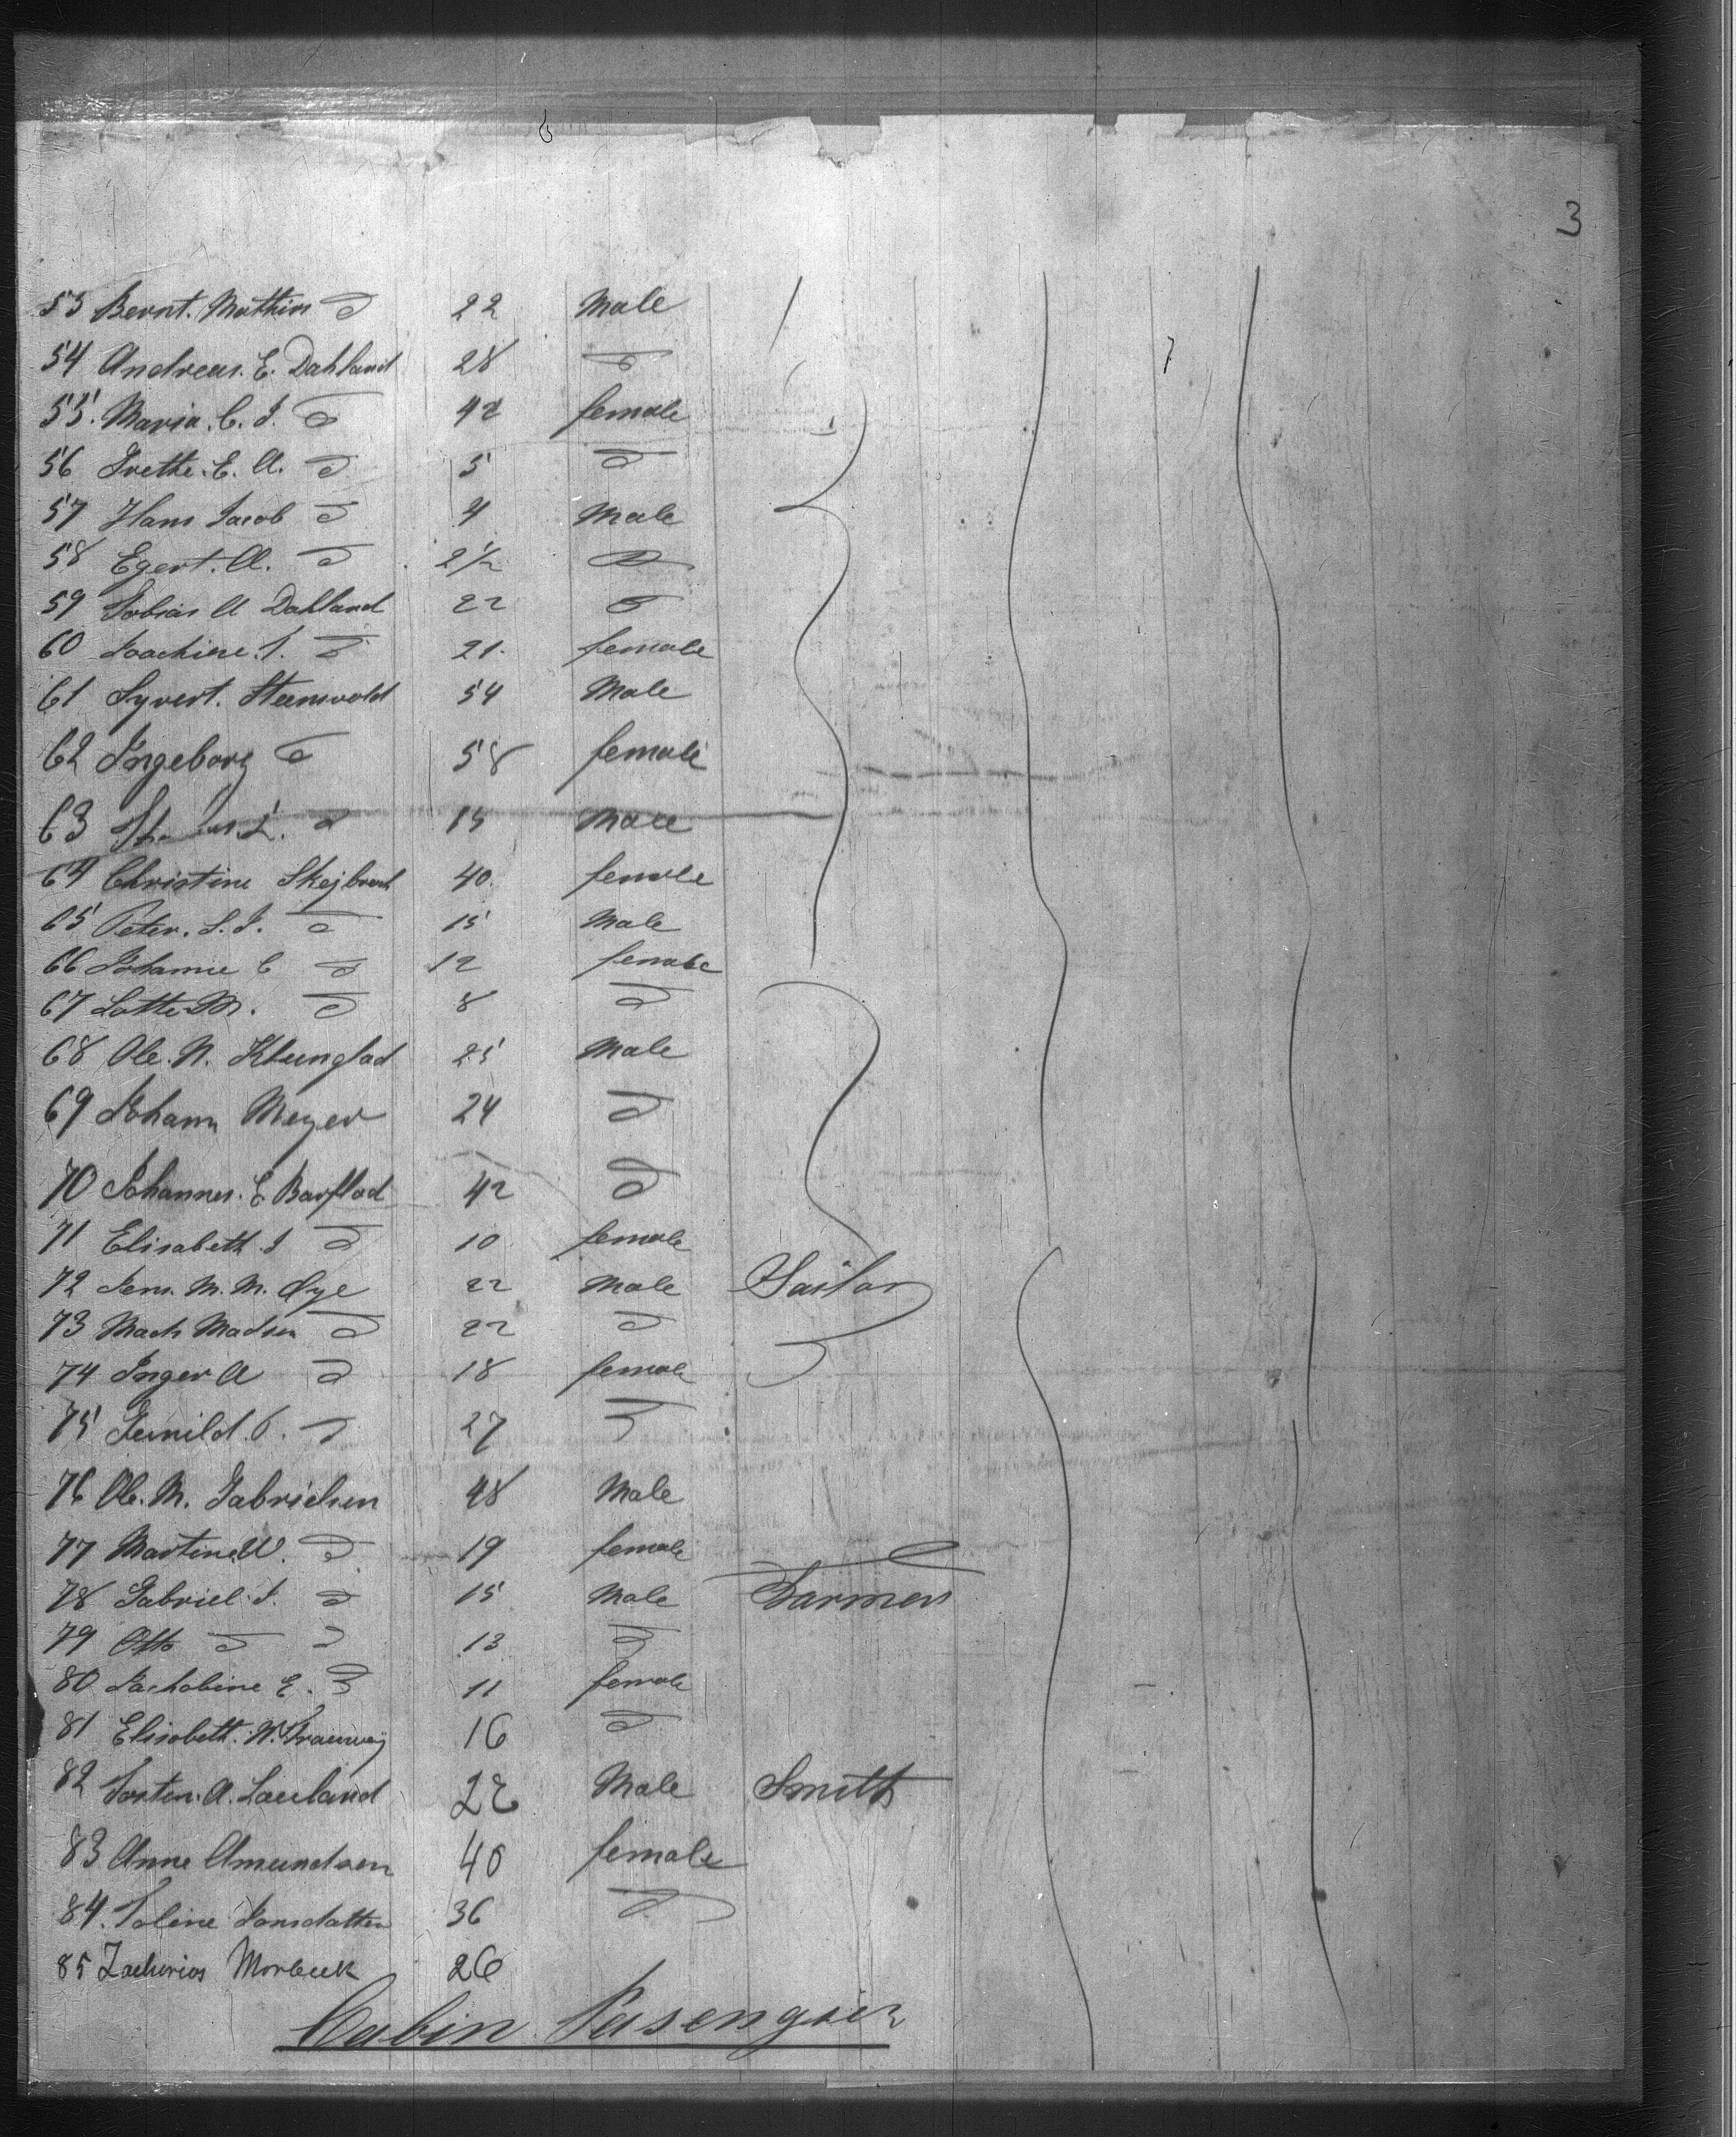 3
53 Bernt. Mathias do 22 Male
54 Andreas. E. Dahland 28 do
55. Maria. C. J. do 42 female
56 Grethe. E. A. do 5 do
57 Hans Jacob do 4 Male
58 Egert. A. do 2 1/2 do
59 Tobias A Dahland 22 do
60 Joachine. T. do 21. female
61 Syvert. Steensvold 54 Male
62 Ingeborg do 58 female
63 do 15 Male
64 Christine 40. female
65 Peter. S. J. do 15 Male
66 Johanne C do 12 female
67 Lotte M. do 8 do
68 Ole. N. 25 Male
69 Johann Meyer 24 do
70 Johannes. E Barflod 42 do
71 Elisabeth. J do 10 female
72 Jens. M. M. Øye 22 Male Sailor
73 Mads Madsen do 22 do
74 Inger A do 18 female
75 do 27 do
76 Ole. M. Gabrielsen 48 Male
77 Martine W. do 19 female
78 Gabriel. J. do 15 Male Farmer
79 Otto do do 13 do
80 Jachobine E. do 11 female
81 Elisabeth. N. 16 do
82 Torsten. A. Laueland 22 Male Smith
83 Anne Amundsen 40 female
84. Toline Jonsdatter 36 do
85 Zacharias Morbeck 26
Cabin Pasengier